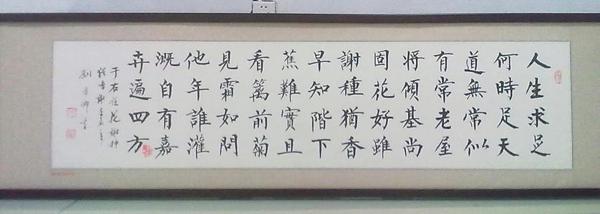 人生求足
何時足天
道無常似
有常老屋
將傾基尚
固花好雖
謝種猶香
早知階下
蕉難實且
看篱前菊
見霜如問
他年誰灌
溉自有嘉
卉遍四方